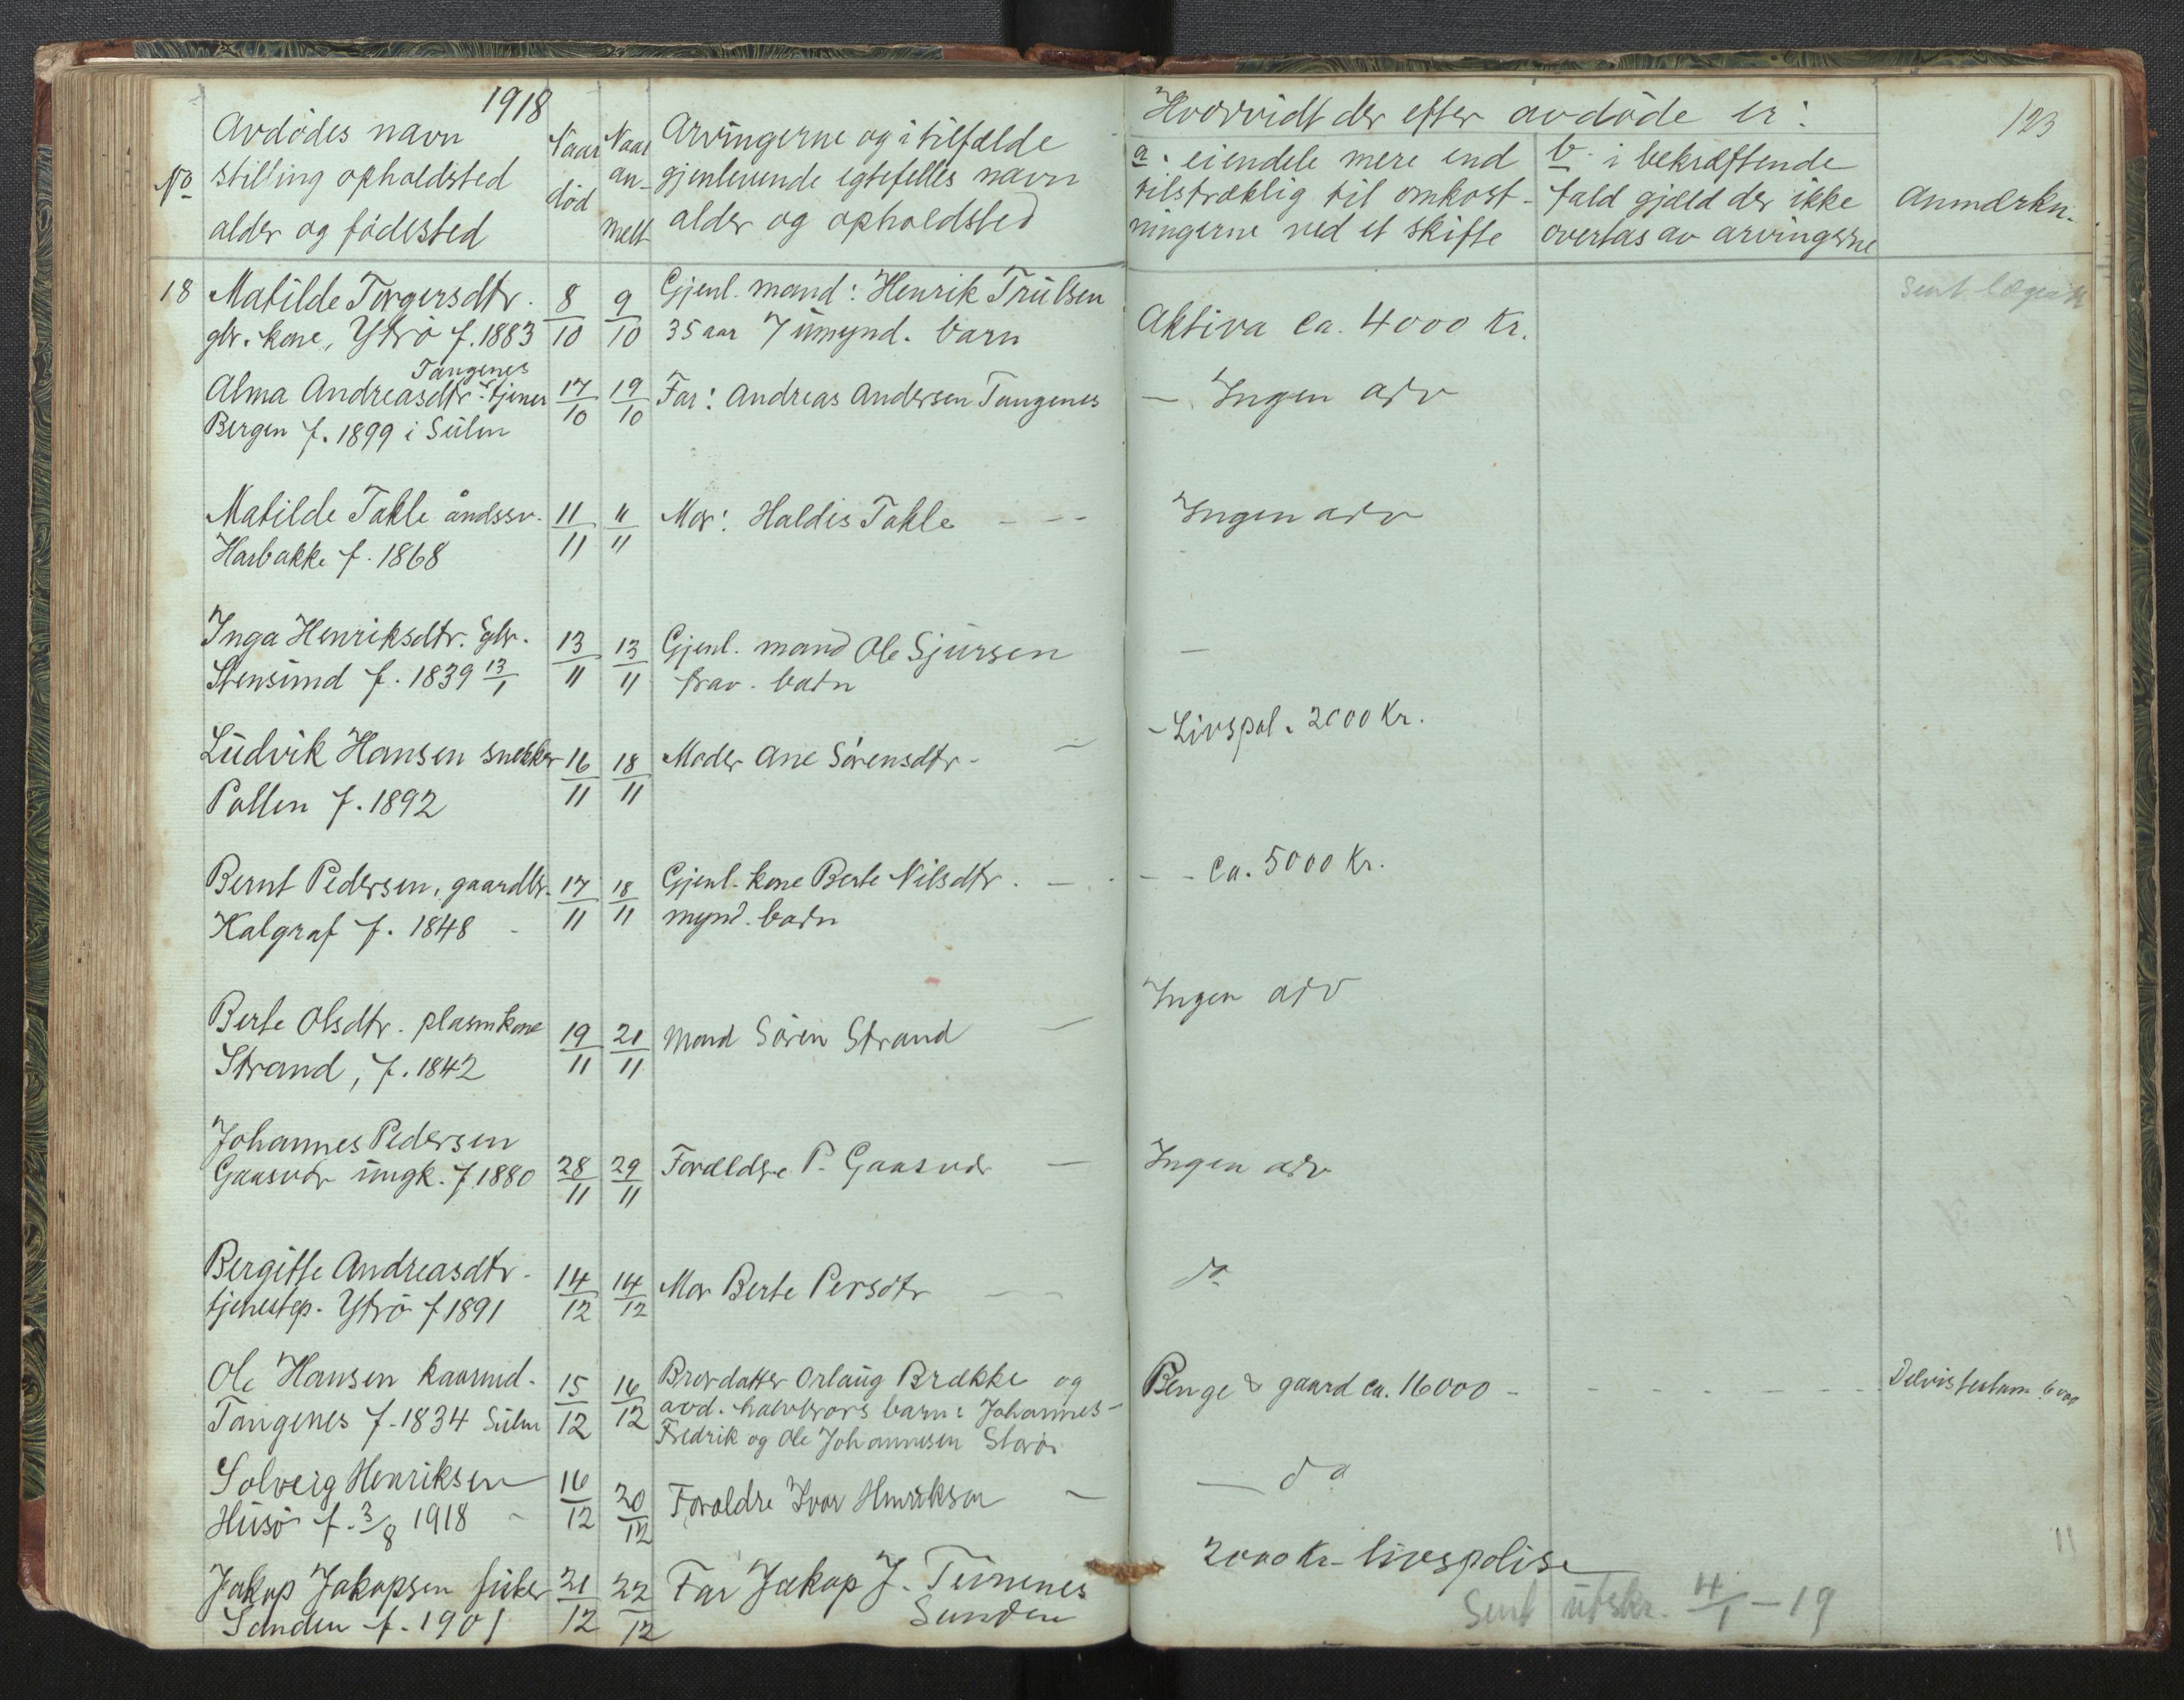 1918
No
Avdödes navn
stilling opholdsted
alder og födested
Naar
död
Naar
an-
melt
Arvingerne og i tilfælde
gjenlevende egtefelles navn
alder og opholdsted
Hvorvidt der efter avdöde er:
a. eiendele mere end
tilstræklig til omkost-
ningerne ved et skifte
b. i bekræftende
fald gjæld der ikke
overtas av arvingerne
123
Anmærkn.
18 Matilde Torgersdtr. 8/10 9/10 Gjenl. mand: Henrik Trulsen
gbr. kone, Ytrö f. 1883 35 aar 7 umynd. barn
Aktiva Ca. 4000 Kr.
Sent
Tangenes
Alma Andreasdtr. tjener 17/10 19/10 Far: Andreas Andersen Tangenes
Bergen f. 1899 i Sulen
- Ingen arv
Matilde Takle åndssv. 11/11 11/11 Mor: Haldis Takle - - -
Harbakke f. 1868
Ingen arv
Inga Henriksdtr. 13/11 13/11 Gjenl. mand Ole Sjursen
Stensund f. 1839 13/1 barn
-
Ludvik Hansen snekker 16/11 18/11 Moder Ane Sörensdtr -
Pollen f. 1892
- Livspol. 2000 Kr.
Bernt Pedersen, gaardbr. 17/11 18/11 Gjenl. kone Berte Nilsdtr. -
Kalgraf f. 1848 - mynd. barn
- - Ca. 5000 Kr.
Berte Olsdtr. plasmkone 19/11 21/11 Mand Sören Strand -
Strand, f. 1842
Ingen arv
Johannes Pedersen
Gaasvær ungk. f 1880 28/11 29/11 Forældre P. Gaasvær -
Ingen arv
Bergitte Andreasdtr - 14/12 14/12 Mor Berte Persdtr - -
tjenestep. Ytrö f 1891
do
Ole Hansen kaarmd. 15/12 16/12 Brordatter Orlaug Brække og
Tangenes f. 1834 Sulen avd. halvbrors barn: Johannes-
Fredrik og Ole Johannesen Storö.
Penge & gaard ca. 16000 - - - - - - -
Delvis testam. 6000
Solveig Henriksen 16/12 20/12 Foraldre Ivar Henriksen -
Husö f. 3/8 1918 -
- do
Jakop Jakopsen fisker 21/12 22/12 Far Jakop J. Teirnenes
Sanden f. 1901 Sunden
2000 Kr - livspolise
Sent utskr. 4/1 - 19